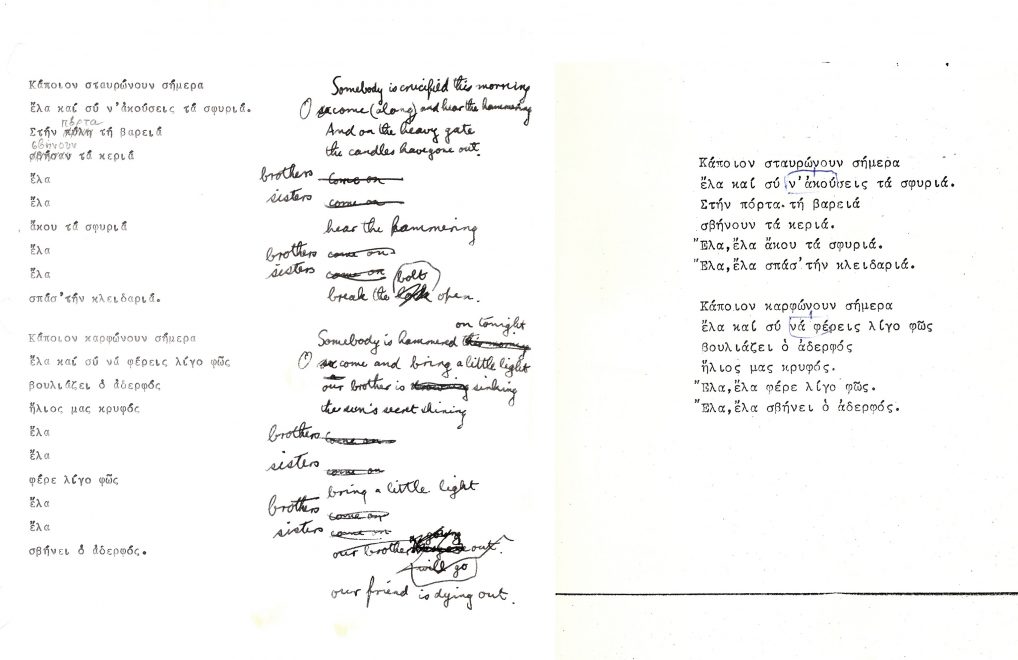 Κάποιον σταυρώνουν σήμερα
ἔλα καί σύ ν'ἀκούσεις τά σφυριά.
πόρτα
Στήν πύλη τή βαρειά
σβήνουν
σβῆσαν τά κεριά
ἔλα
ἔλα
ἄκου τά σφυριά
ἔλα
ἔλα
σπάσ'τήν κλειδαριά.
Κάποιον καρφώνουν σήμερα
ἔλα καί σύ νά φέρεις λίγο φῶς
βουλιάζει ὁ ἀδερφός
ἥλιος μας κρυφός
ἔλα
ἔλα
φέρε λίγο φῶς
ἔλα
ἔλα
σβήνει ὁ ἀδερφός.
Somebody is crucified this morning
O come (along) and hear the hammering
And on the heavy gate
the candles have gone out.
brothers come on
sisters come on
hear the hammering
brothers come on
sisters come on
bolt
break the lock open.
on tonight
Somebody is hammered this morning
O come and bring a little light
our brother is drowning sinking
the sun's secret shining
brothers come on
sisters come on
bring a little light
brothers come on
sisters come on
going
our brother out.
will go
our friend is dying out.
Κάποιον σταυρώνουν σήμερα
ἔλα καί σύ ν'ἀκούσεις τά σφυριά.
Στήν πόρτα τή βαρειά
σβήνουν τά κεριά.
Ἔλα,ἔλα ἄκου τά σφυριά.
Ἔλα,ἔλα σπάσ'τήν κλειδαριά.
Κάποιον καρφώνουν σήμερα
ἔλα καί σύ νά φέρεις λίγο φῶς
βουλιάζει ὁ ἀδερφός
ἥλιος μας κρυφός.
Ἔλα,ἔλα φέρε λίγο φῶς.
Ἔλα,ἔλα σβήνει ὁ ἀδερφός.